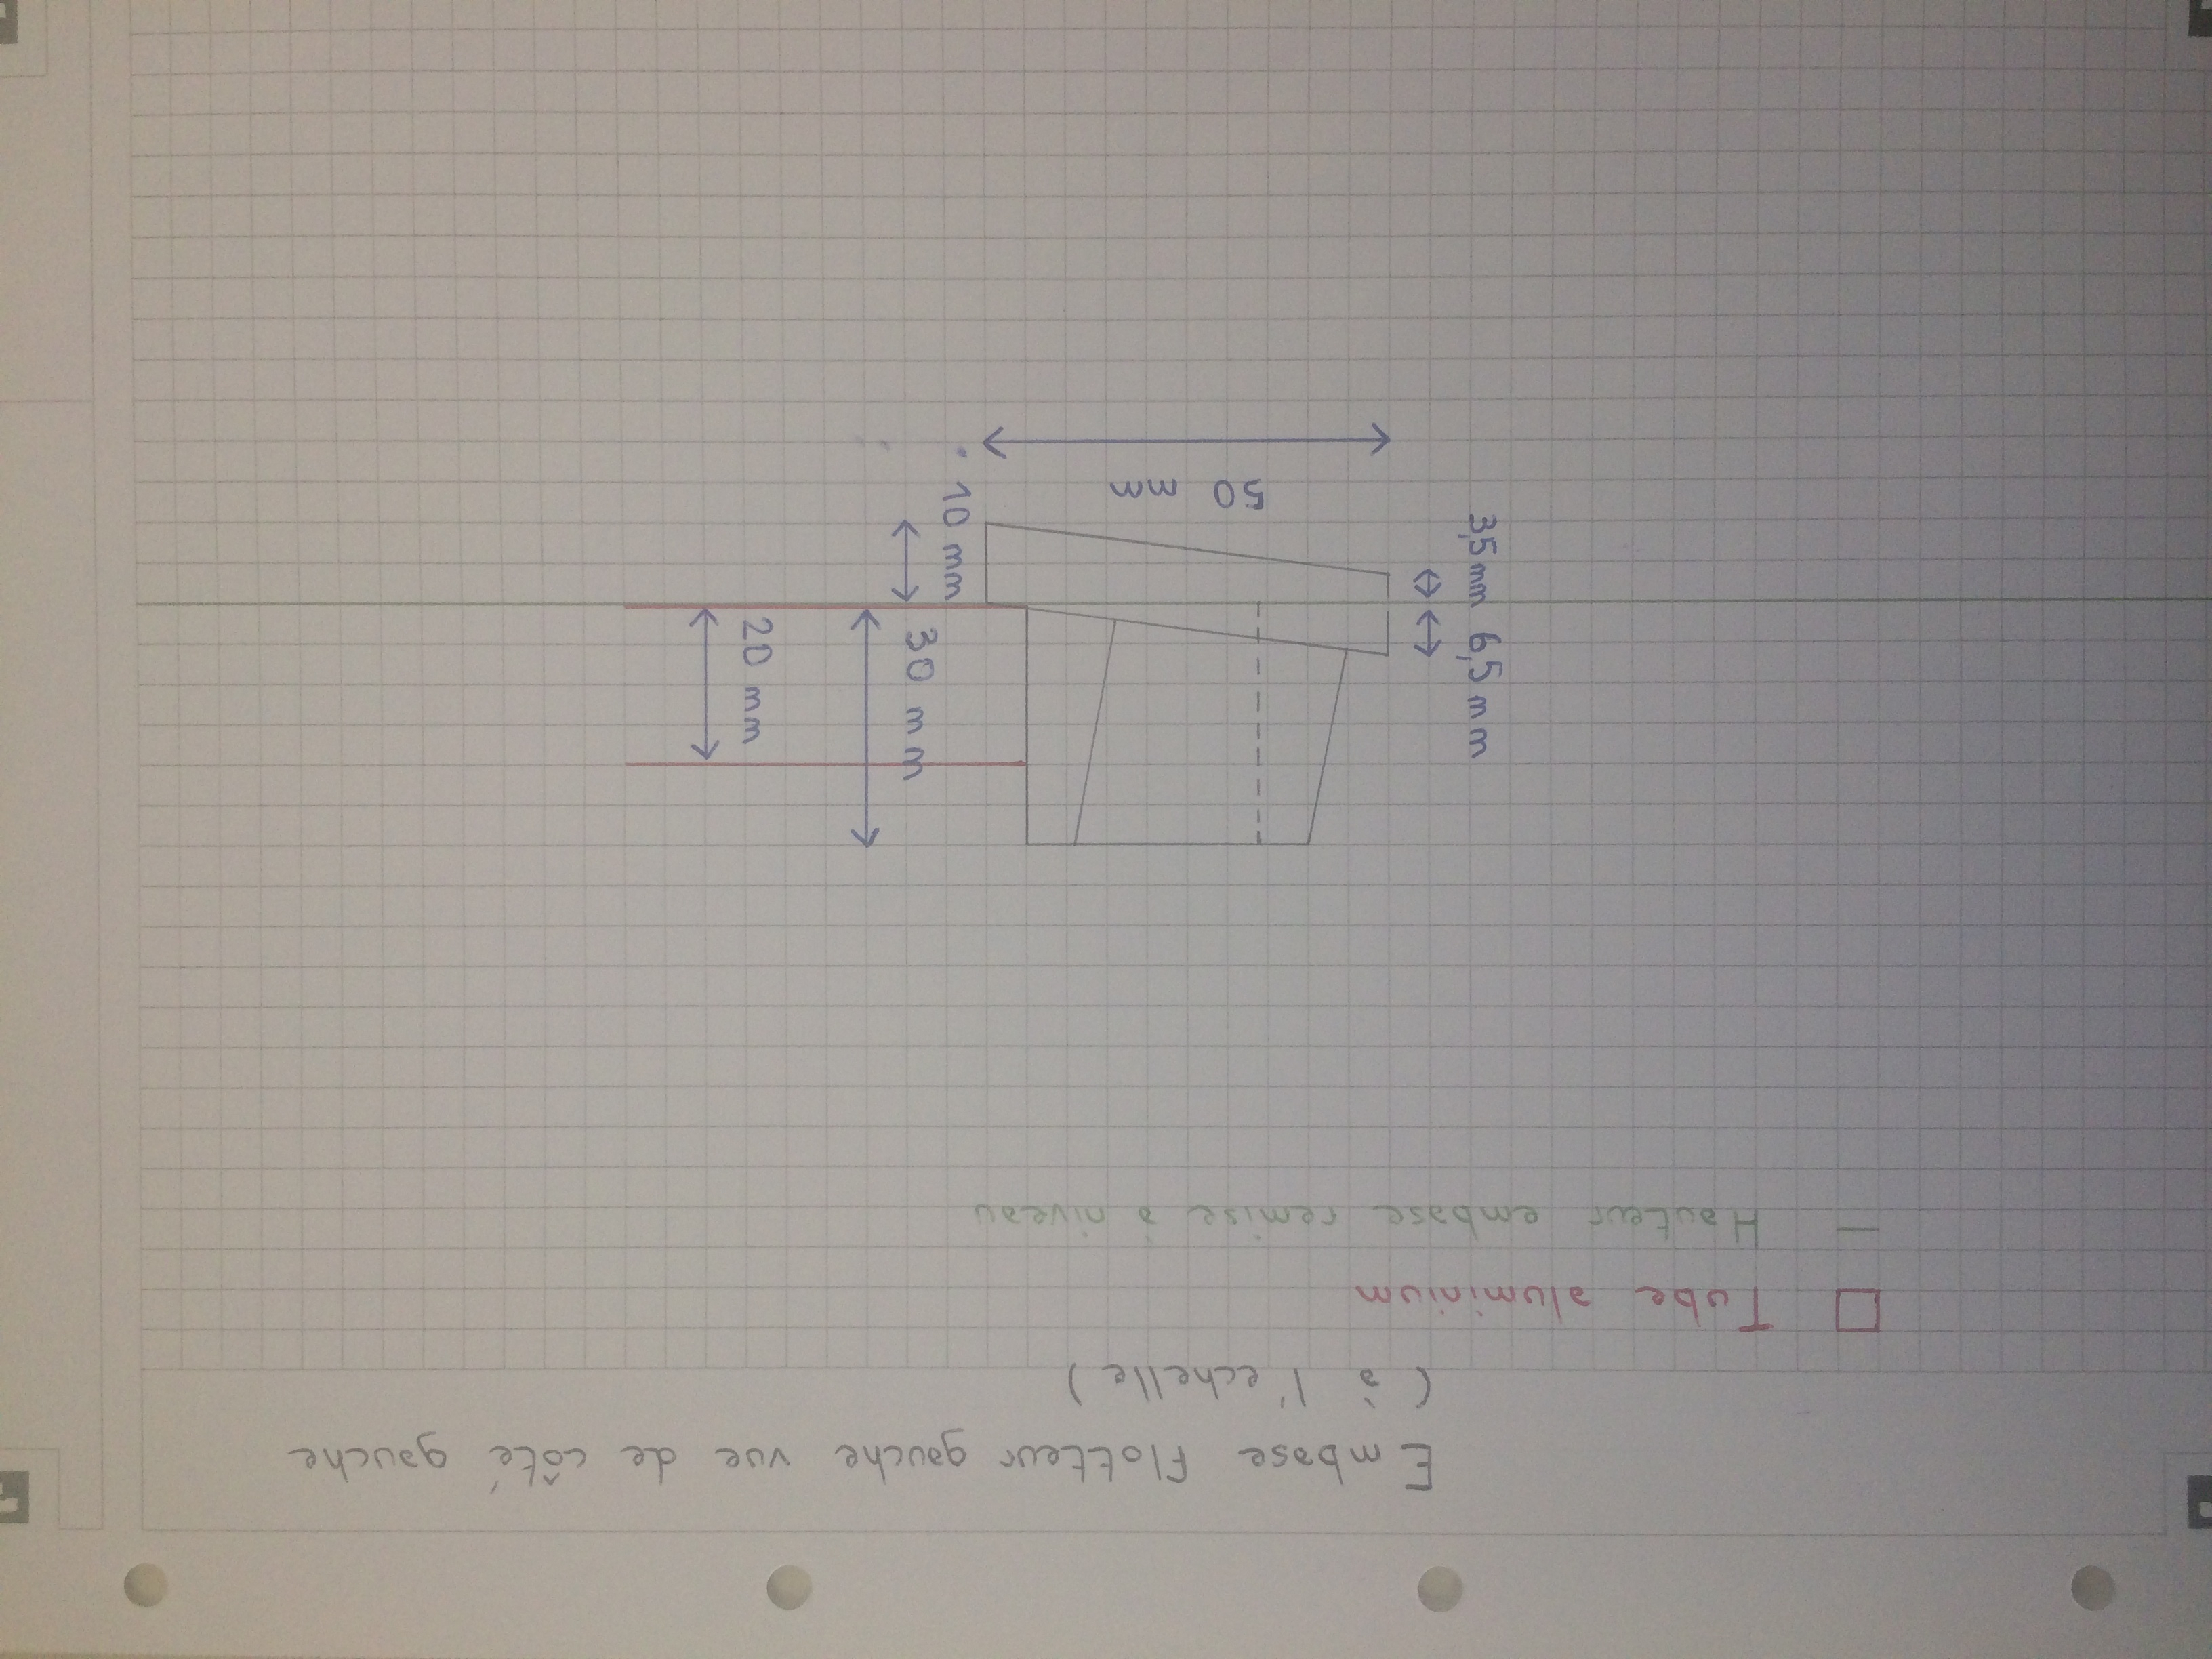 Embase flotteur gauche vue de côté gauche
(à l'echelle)
Tube aluminium
Hauteur embase remise à niveau
30 mm
20 mm
6,5 mm
3,5 mm
10 mm
50 mm